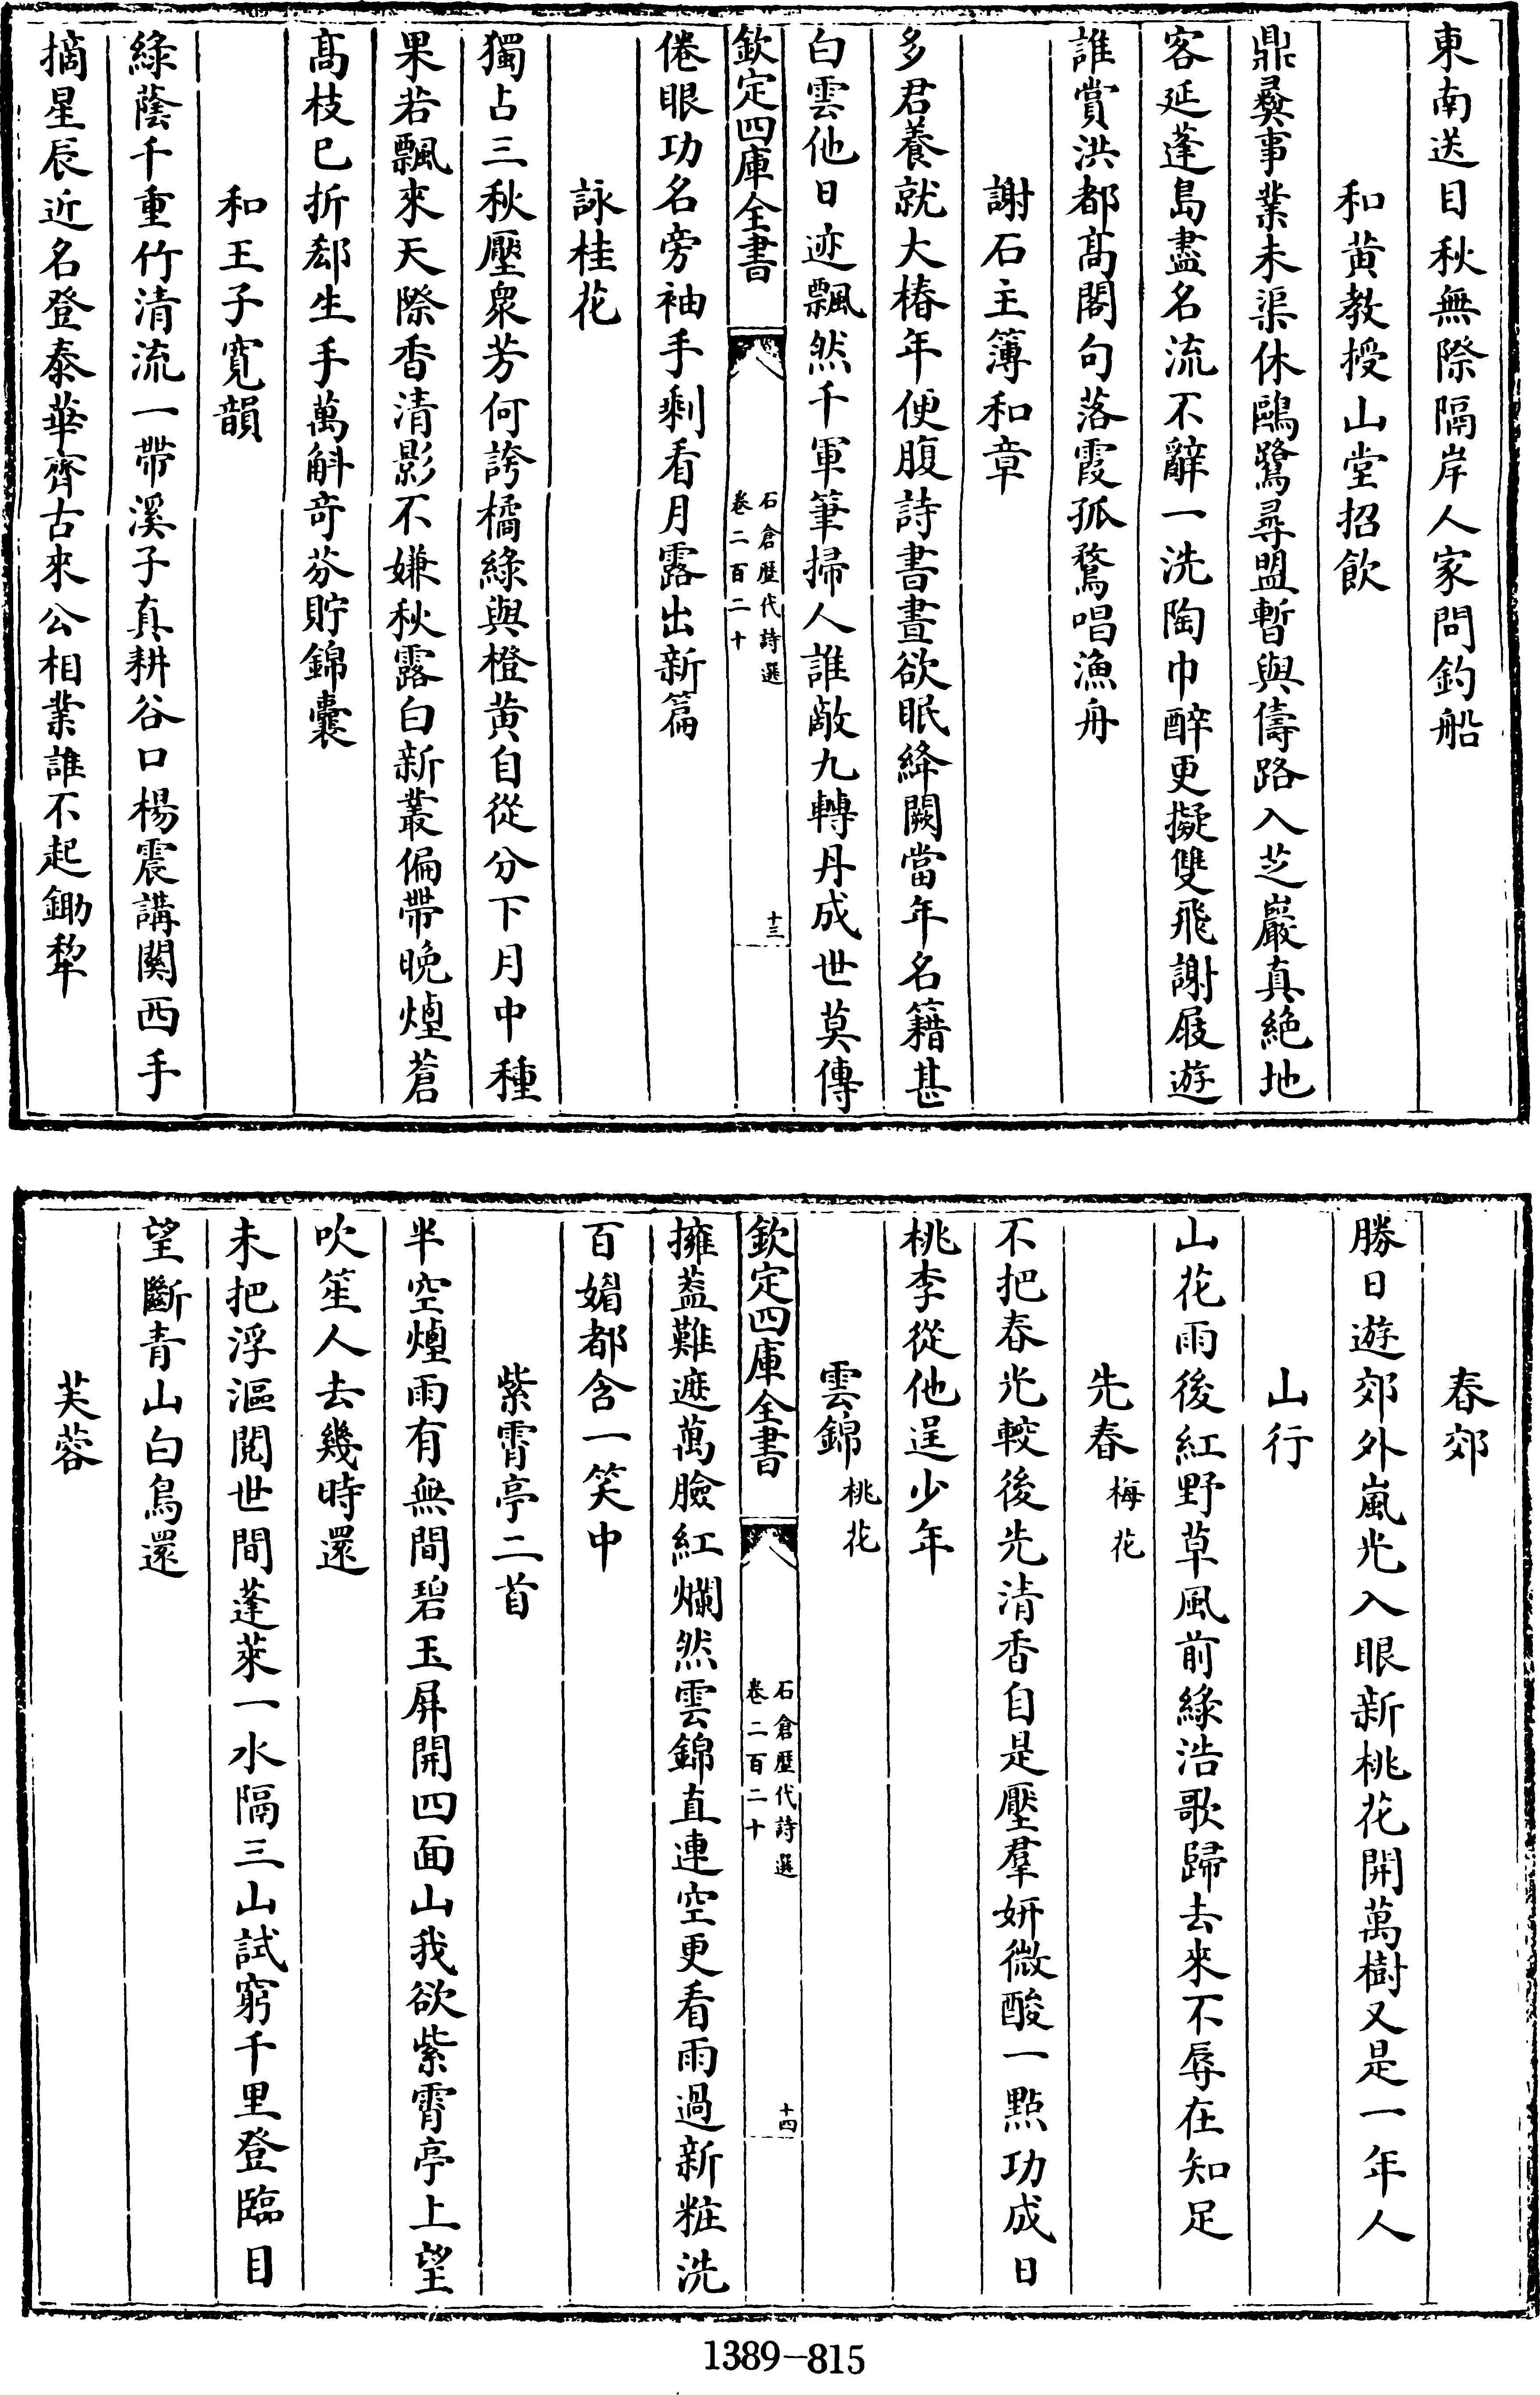 東南送目秋無際隔岸人家問釣船
和黄教授山堂招飲
鼎彛事業未渠休鷗鷺尋盟暫與儔路入芝巖真絶地
客延蓬島盡名流不辭一洗陶巾醉更擬雙飛謝屐遊
誰賞洪都髙閣句落霞孤鶩唱漁舟
謝石主簿和章
多君養就大椿年便腹詩書晝欲眠絳闕當年名籍甚
白雲他日迹飄然千軍筆掃人誰敵九轉丹成世莫傳
欽定四庫全書
石倉歴代詩選
卷二百二十
十三
倦眼功名旁袖手剩看月露出新篇
詠桂花
獨占三秋壓衆芳何誇橘綠與橙黄自從分下月中種
果若飄來天際香清影不嫌秋露白新叢偏帶晩煙蒼
髙枝已折郄生手萬斛竒芬貯錦囊
和王子寛韻
綠蔭千重竹清流一帶溪子真耕谷口楊震講關西手
摘星辰近名登泰華齊古來公相業誰不起鋤犂
春郊
勝日遊郊外嵐光入眼新桃花開萬樹又是一年人
山行
山花雨後紅野草風前綠浩歌歸去來不辱在知足
先春梅花
不把春光較後先清香自是壓羣妍微酸一點功成日
桃李從他逞少年
雲錦桃花
欽定四庫全書
石倉歴代詩選
卷二百二十
十四
擁葢難遮萬臉紅爛然雲錦直連空更看雨過新粧洗
百媚都含一笑中
紫霄亭二首
半空煙雨有無間碧玉屏開四面山我欲紫霄亭上望
吹笙人去幾時還
未把浮漚閱世間蓬萊一水隔三山試窮千里登臨目
望斷青山白鳥還
芙蓉
1389-815